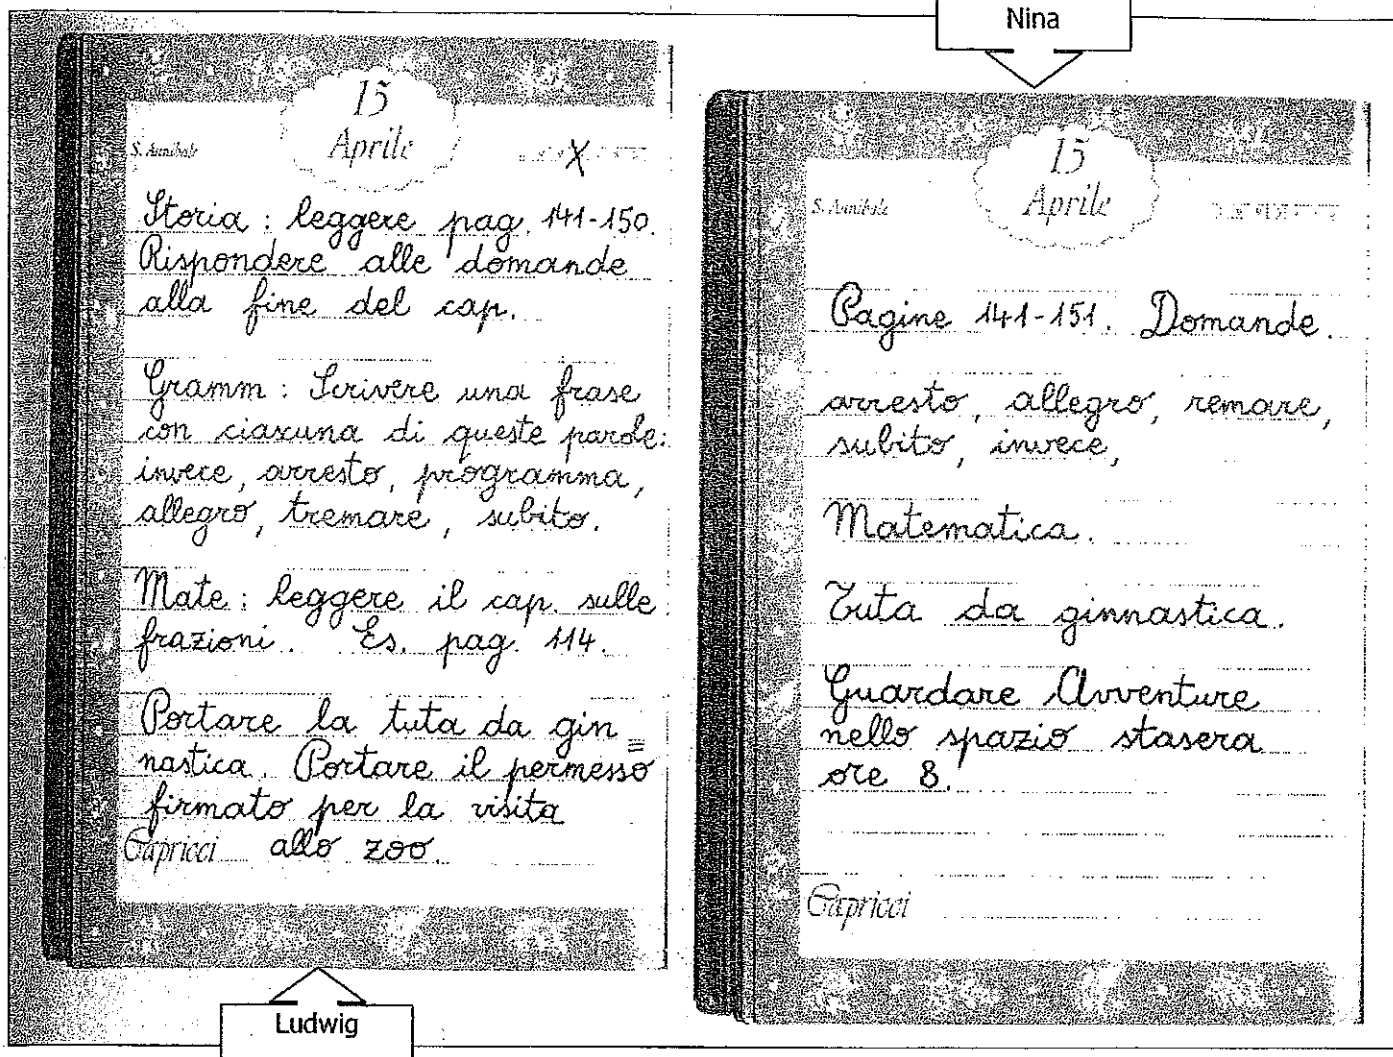 Nina
15
Aprile
S. Annibale
X
Storia : leggere pag. 141-150.
Rispondere alle domande
alla fine del cap.
Gramm : Scrivere una frase
con ciascuna di queste parole:
invece, arresto, programma,
allegro, tremare, subito.
Mate : leggere il cap. sulle
frazioni. Es. pag. 114.
Portare la tuta da gin=
nastica. Portare il permesso
firmato per la visita
Capricci allo zoo.
Ludwig
15
Aprile
S. Annibale
Pagine 141-151. Domande.
arresto, allegro, remare,
subito, invece,
Matematica.
Tuta da ginnastica.
Guardare Avventure
nello spazio stasera
ore 8.
Capricci